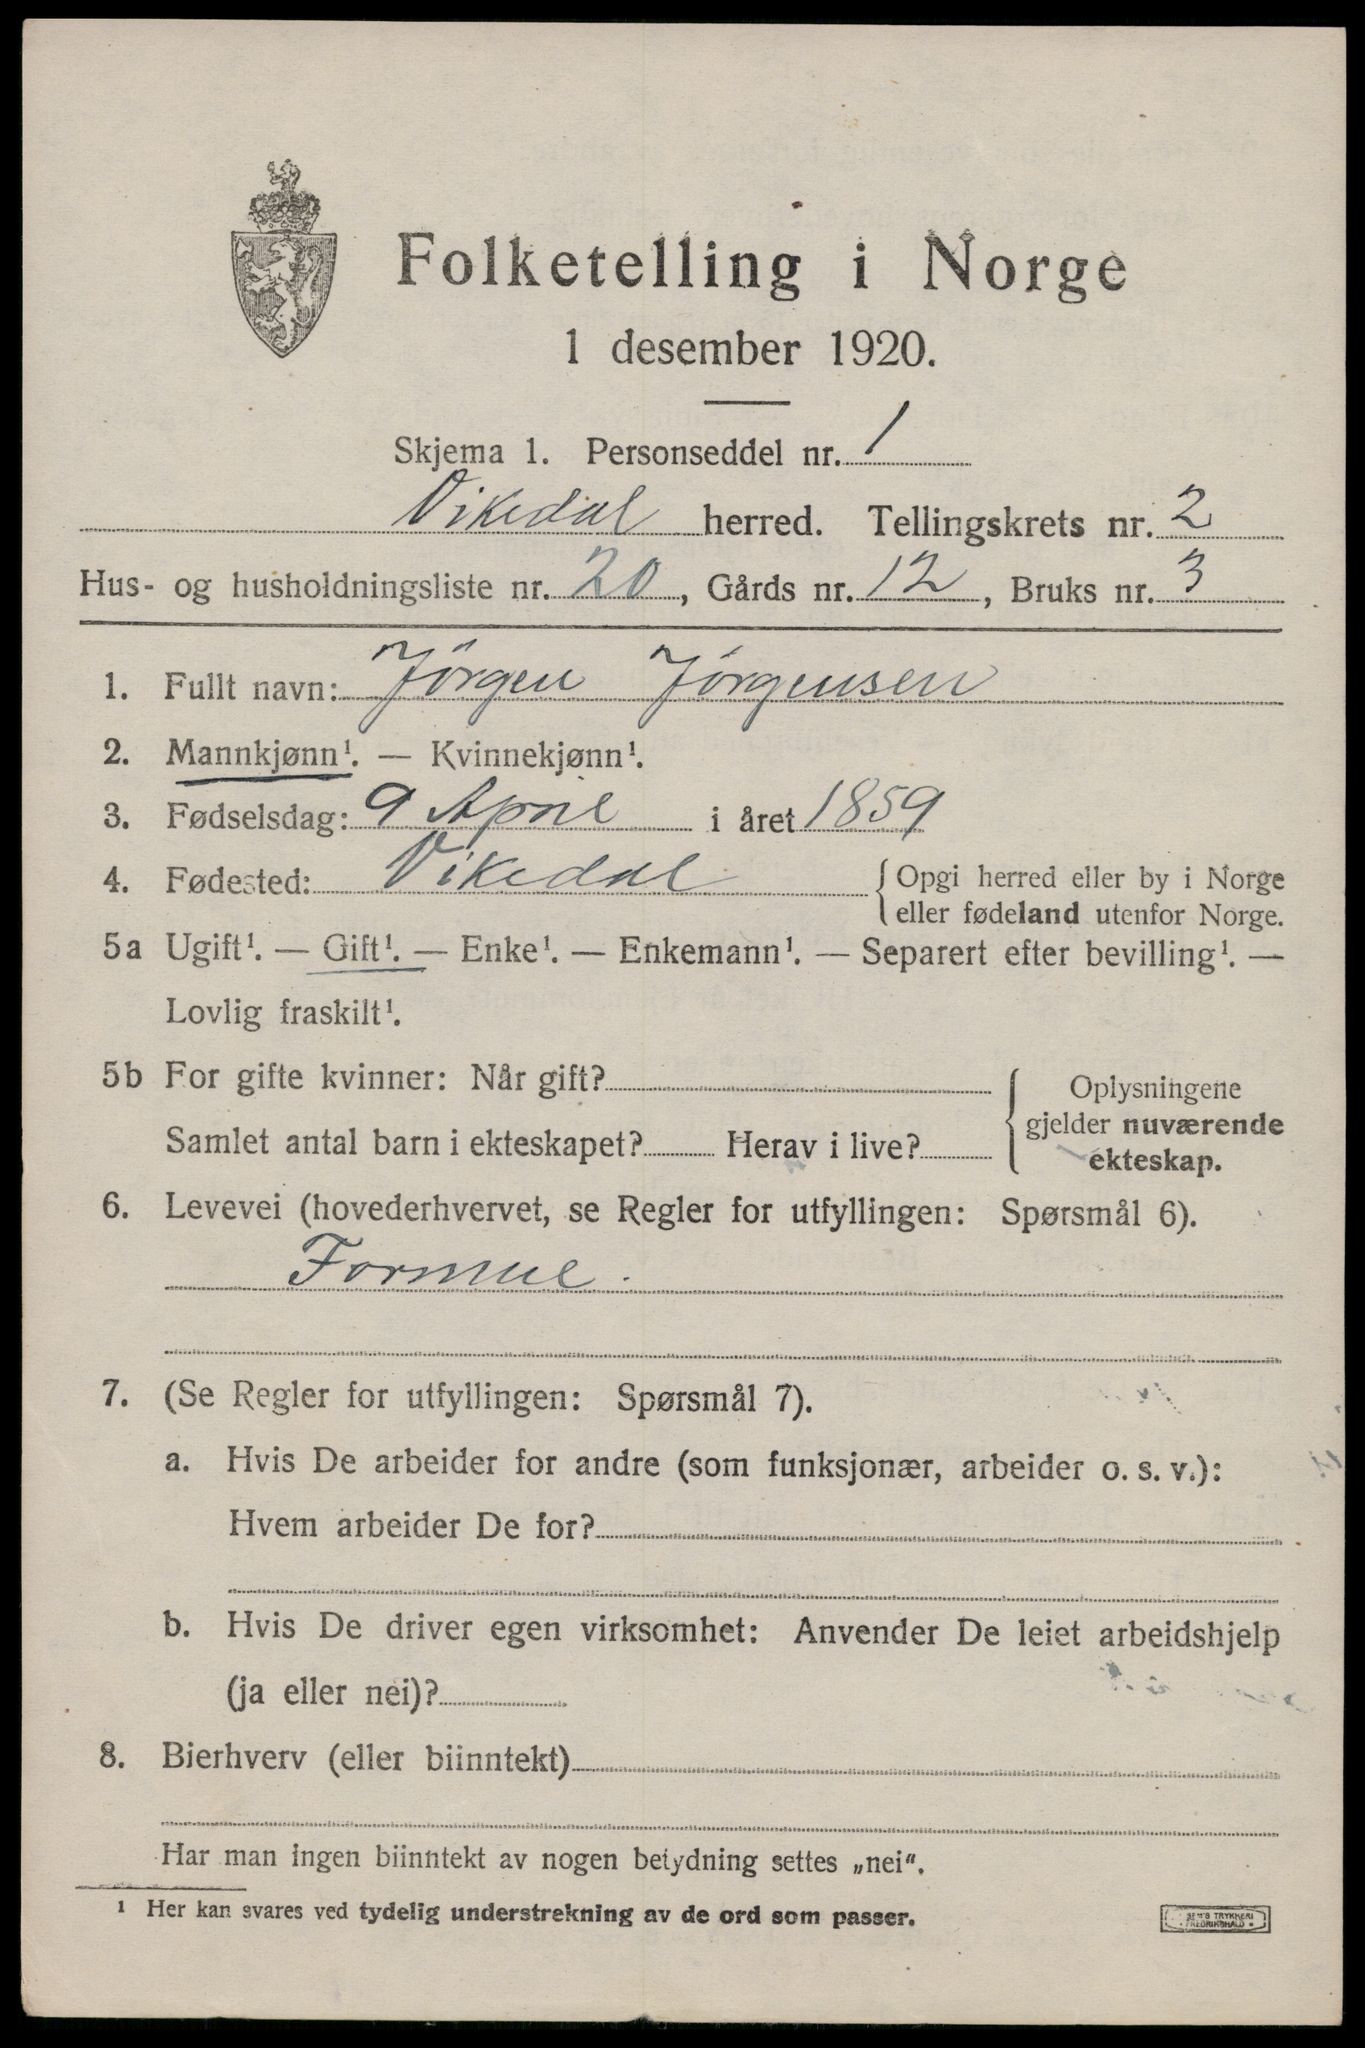 Folketelling i Norge
1 desember 1920.
Skjema 1. Personseddel nr. 1
Vikedal herred. Tellingskrets nr. 2
Hus- og husholdningsliste nr. 20, Gårds nr. 12, Bruks nr. 3
1. Fullt navn: Jörgen Jörgensen
2. Mannkjønn¹. — Kvinnekjønn¹.
3. Fødselsdag: 9 April i året 1859
4. Fødested: Vikedal {Opgi herred eller by i Norge
eller fødeland utenfor Norge.
5a Ugift¹. — Gift¹. — Enke¹. — Enkemann¹. — Separert efter bevilling¹. —
Lovlig fraskilt¹.
5b For gifte kvinner: Når gift?
Samlet antal barn i ekteskapet? Herav i live?
{Oplysningene
gjelder nuværende
ekteskap.
6. Levevei (hovederhvervet, se Regler for utfyllingen: Spørsmål 6).
Formue.
7. (Se Regler for utfyllingen: Spørsmål 7).
a. Hvis De arbeider for andre (som funksjonær, arbeider o. s. v.):
Hvem arbeider De for?
b. Hvis De driver egen virksomhet: Anvender De leiet arbeidshjelp
(ja eller nei)?
8. Bierhverv (eller biinntekt)
Har man ingen biinntekt av nogen betydning settes „nei".
¹ Her kan svares ved tydelig understrekning av de ord som passer.
TRYKKERI
FREDRIKSHALD